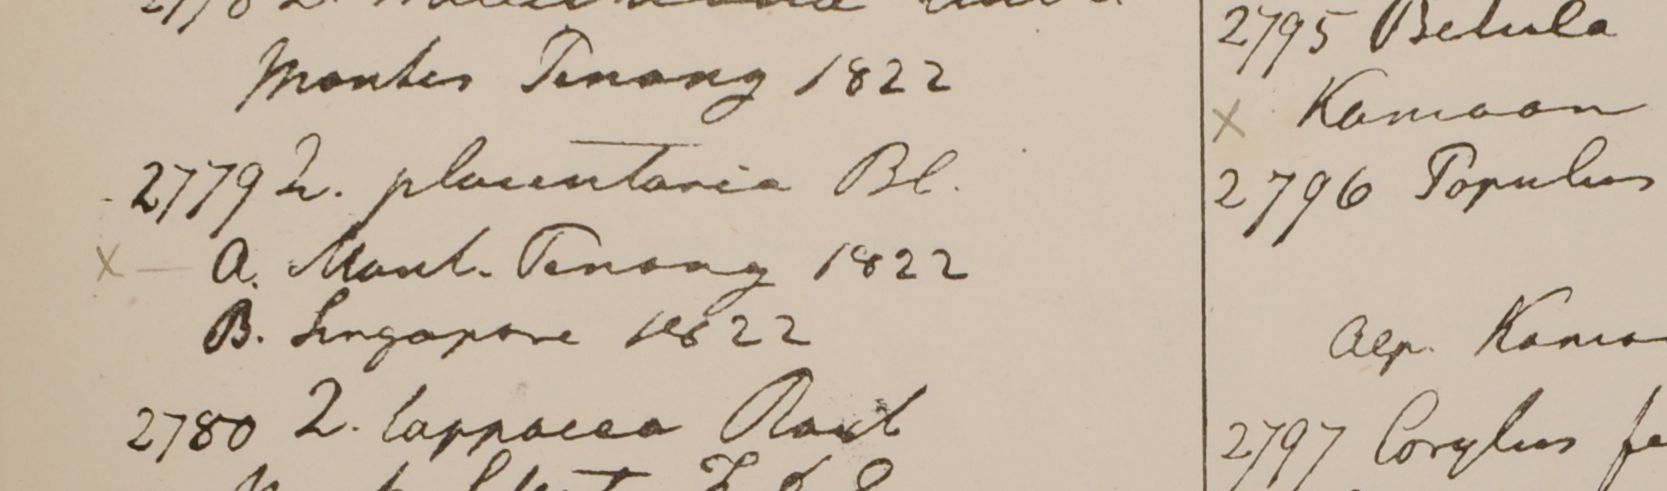 Montes Penang 1822
2779 Q. placentaria Bl.
x — A. Mont. Penang 1822
B. Singapore 1822
2780 Q. lappacea Roxb
2795 Betula
x Kamaon
2796 Populus
Alp. Kamao
2797 Corylus fe